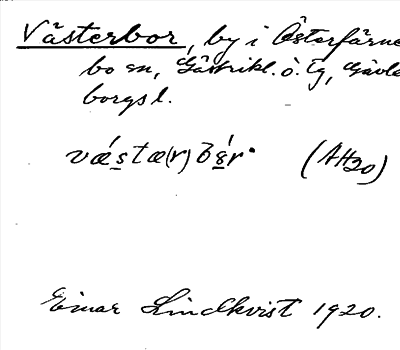 Västerbor, by i Österfärne
bo sn, Gästrikl. ö. tg, Gävle
borgs l.
vǽsta(r)bór (AH20)
Einar Lindkvist 1920.